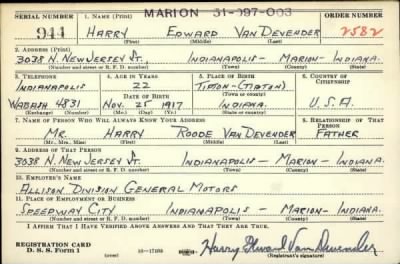 SERIAL NUMBER 1. NAME (Print) MARION 31-097-003 ORDER NUMBER
944 HARRY EDWARD VAN DEVENDER 2582
(First) (Middle) (Last)
2. ADDRESS (Print)
3038 N. NEW JERSEY ST. INDIANAPOLIS - MARION - INDIANA.
(Number and street or R. F. D. number) (Town) (County) (State)
3. TELEPHONE 4. AGE IN YEARS 5. PLACE OF BIRTH 6. COUNTRY OF CITIZENSHIP
INDIANAPOLIS 22 TIPTON-(TIPTON)
DATE OF BIRTH (Town or county)
WABASH 4831 NOV. 25 1917 INDIANA. U.S.A.
(Exchange) (Number) (Mo.) (Day) (Yr.) (State or country)
7. NAME OF PERSON WHO WILL ALWAYS KNOW YOUR ADDRESS 8. RELATIONSHIP OF THAT PERSON
MR. HARRY ROODE VAN DEVENDER FATHER
(Mr., Mrs., Miss) (First) (Middle) (Last)
9. ADDRESS OF THAT PERSON
3038 N. NEW JERSEY ST. INDIANAPOLIS - MARION - INDIANA.
(Number and street or R. F. D. number) (Town) (County) (State)
10. EMPLOYER'S NAME
ALLISON DIVISION GENERAL MOTORS
11. PLACE OF EMPLOYMENT OR BUSINESS
SPEEDWAY CITY INDIANAPOLIS - MARION - INDIANA.
(Number and street or R. F. D. number) (Town) (County) (State)
I AFFIRM THAT I HAVE VERIFIED ABOVE ANSWERS AND THAT THEY ARE TRUE.
REGISTRATION CARD
D. S. S. Form 1 (over) 16-17105 Harry Edward Van Devender
(Registrant's signature)